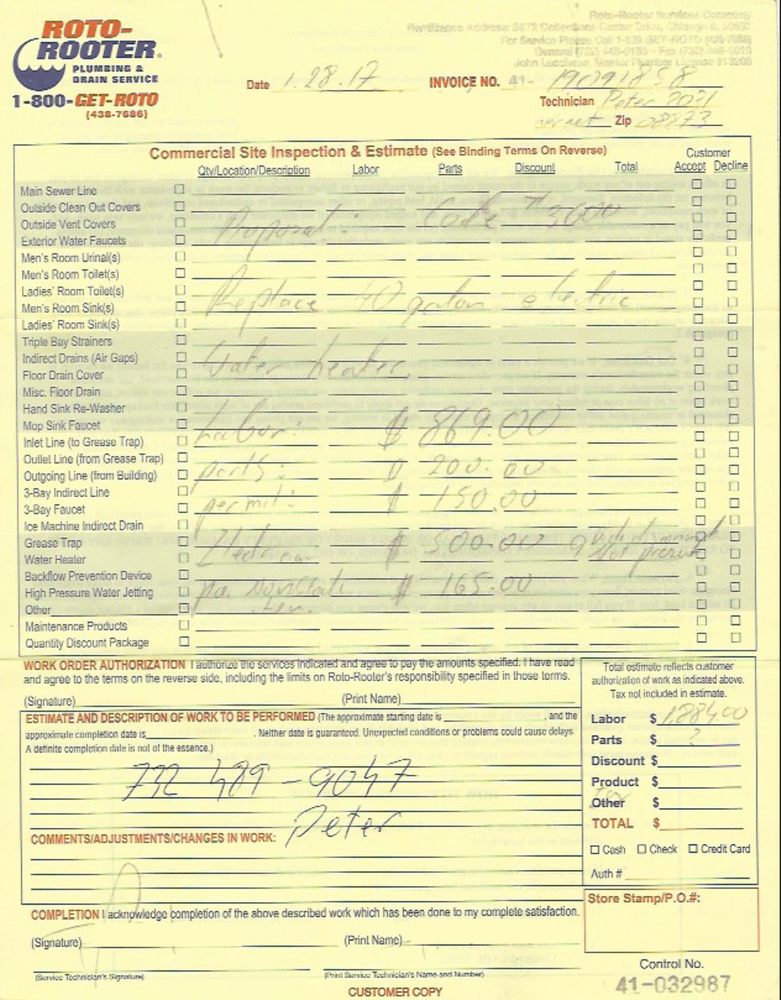 ROTO-ROOTER
PLUMBING & DRAIN SERVICE
1-800-GET-ROTO
(438-7686)
Roto-Rooter Services Company
Date 1.28.17 INVOICE NO. 41-
Technician Peter
Zip
Commercial Site Inspection & Estimate (See Binding Terms On Reverse)
Customer
Qty/Location/Description Labor Parts Discount Total Accept Decline
Main Sewer Line
Outside Clean Out Covers
Outside Vent Covers
Proposal: Code # 3000
Exterior Water Faucets
Men's Room Urinal(s)
Men's Room Toilet(s)
Ladies' Room Toilet(s)
Replace 40 galon electric
Men's Room Sink(s)
Ladies' Room Sink(s)
Triple Bay Strainers
Indirect Drains (Air Gaps)
water heater
Floor Drain Cover
Misc. Floor Drain
Hand Sink Re-Washer
Mop Sink Faucet
Labor: $ 869.00
Inlet Line (to Grease Trap)
Outlet Line (from Grease Trap)
Outgoing Line (from Building)
parts: $ 200.00
3-Bay Indirect Line
3-Bay Faucet
permit: $ 150.00
Ice Machine Indirect Drain
Grease Trap
Water Heater
Electrician $ 500.00
Backflow Prevention Device
High Pressure Water Jetting
$ 165.00
Other
Maintenance Products
Quantity Discount Package
WORK ORDER AUTHORIZATION I authorize the services indicated and agree to pay the amounts specified. I have read
and agree to the terms on the reverse side, including the limits on Roto-Rooter's responsibility specified in those terms.
(Signature) (Print Name)
ESTIMATE AND DESCRIPTION OF WORK TO BE PERFORMED (The approximate starting date is , and the
approximate completion date is . Neither date is guaranteed. Unexpected conditions or problems could cause delays.
A definite completion date is not of the essence.)
732 489-9047
Peter
COMMENTS/ADJUSTMENTS/CHANGES IN WORK:
COMPLETION I acknowledge completion of the above described work which has been done to my complete satisfaction.
(Signature) (Print Name)
(Service Technician's Signature) (Print Service Technician's Name and Number)
CUSTOMER COPY
Total estimate reflects customer
authorization of work as indicated above.
Tax not included in estimate.
Labor $ 1,884.00
Parts $ ?
Discount $
Product $
Other $
TOTAL $
Cash Check Credit Card
Auth #
Store Stamp/P.O.#:
Control No.
41-032987